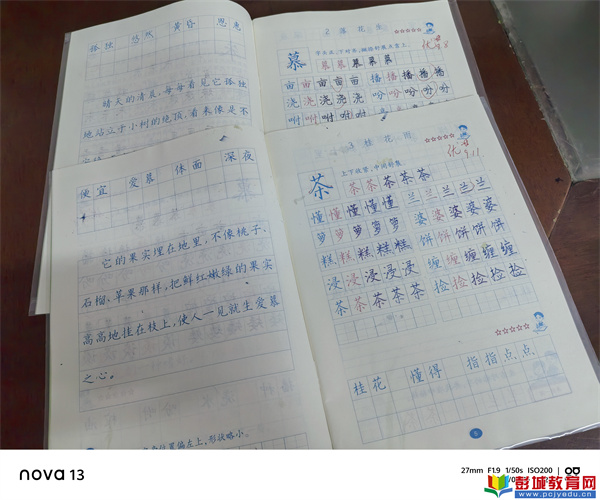 孤独 黄昏 恩惠
晴天的清晨,每每看见它孤独
地站立于小树的绝顶,看来像是不
2 落花生
慕
慕慕慕慕慕
亩亩亩亩亩 播播播播播
浇浇浇浇浇 吩吩吩吩吩
咐咐咐咐咐
优
便宜 爱慕 体面 深夜
它的果实埋在地里,不像桃子、
石榴、苹果那样,把鲜红嫩绿的果实
高高地挂在枝上,使人一见就生爱慕
之心。
偏左上,形状略小。
3 桂花雨
上下收紧,中间舒展
茶
茶茶茶茶茶
懂懂懂懂懂 兰兰兰兰兰
箩箩箩箩箩 婆婆婆婆婆
糕糕糕糕糕 饼饼饼饼饼
浸浸浸浸浸 缠缠缠缠缠
茶茶茶茶茶 捡捡捡捡捡
优
9.11
桂花 懂得 指指点点
nova 13
27mm F1.9 1/50s ISO200
彭城教育网
www.pcjyedu.cn